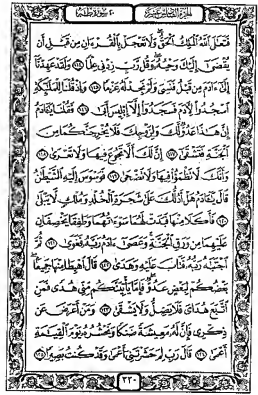 الجزء السادس عشر سورة طه ٢٠
فَتَعَٰلَى ٱللَّهُ ٱلْمَلِكُ ٱلْحَقُّ وَلَا تَعْجَلْ بِٱلْقُرْءَانِ مِن قَبْلِ أَن
يُقْضَىٰٓ إِلَيْكَ وَحْيُهُۥ وَقُل رَّبِّ زِدْنِى عِلْمًا ١١٤ وَلَقَدْ عَهِدْنَآ
إِلَىٰٓ ءَادَمَ مِن قَبْلُ فَنَسِىَ وَلَمْ نَجِدْ لَهُۥ عَزْمًا ١١٥ وَإِذْ قُلْنَا لِلْمَلَٰٓئِكَةِ
ٱسْجُدُوا۟ لِءَادَمَ فَسَجَدُوٓا۟ إِلَّآ إِبْلِيسَ أَبَىٰ ١١٦ فَقُلْنَا يَٰٓـَٔادَمُ
إِنَّ هَٰذَا عَدُوٌّ لَّكَ وَلِزَوْجِكَ فَلَا يُخْرِجَنَّكُمَا مِنَ
ٱلْجَنَّةِ فَتَشْقَىٰٓ ١١٧ إِنَّ لَكَ أَلَّا تَجُوعَ فِيهَا وَلَا تَعْرَىٰ ١١٨
وَأَنَّكَ لَا تَظْمَؤُا۟ فِيهَا وَلَا تَضْحَىٰ ١١٩ فَوَسْوَسَ إِلَيْهِ ٱلشَّيْطَٰنُ
قَالَ يَٰٓـَٔادَمُ هَلْ أَدُلُّكَ عَلَىٰ شَجَرَةِ ٱلْخُلْدِ وَمُلْكٍ لَّا يَبْلَىٰ
١٢٠ فَأَكَلَا مِنْهَا فَبَدَتْ لَهُمَا سَوْءَٰتُهُمَا وَطَفِقَا يَخْصِفَانِ
عَلَيْهِمَا مِن وَرَقِ ٱلْجَنَّةِ وَعَصَىٰٓ ءَادَمُ رَبَّهُۥ فَغَوَىٰ ١٢١ ثُمَّ
ٱجْتَبَٰهُ رَبُّهُۥ فَتَابَ عَلَيْهِ وَهَدَىٰ ١٢٢ قَالَ ٱهْبِطَا مِنْهَا جَمِيعًۢا
بَعْضُكُمْ لِبَعْضٍ عَدُوٌّ فَإِمَّا يَأْتِيَنَّكُم مِّنِّى هُدًى فَمَنِ
ٱتَّبَعَ هُدَاىَ فَلَا يَضِلُّ وَلَا يَشْقَىٰ ١٢٣ وَمَنْ أَعْرَضَ عَن
ذِكْرِى فَإِنَّ لَهُۥ مَعِيشَةً ضَنكًا وَنَحْشُرُهُۥ يَوْمَ ٱلْقِيَٰمَةِ
أَعْمَىٰ ١٢٤ قَالَ رَبِّ لِمَ حَشَرْتَنِىٓ أَعْمَىٰ وَقَدْ كُنتُ بَصِيرًا ١٢٥
٣٢٠